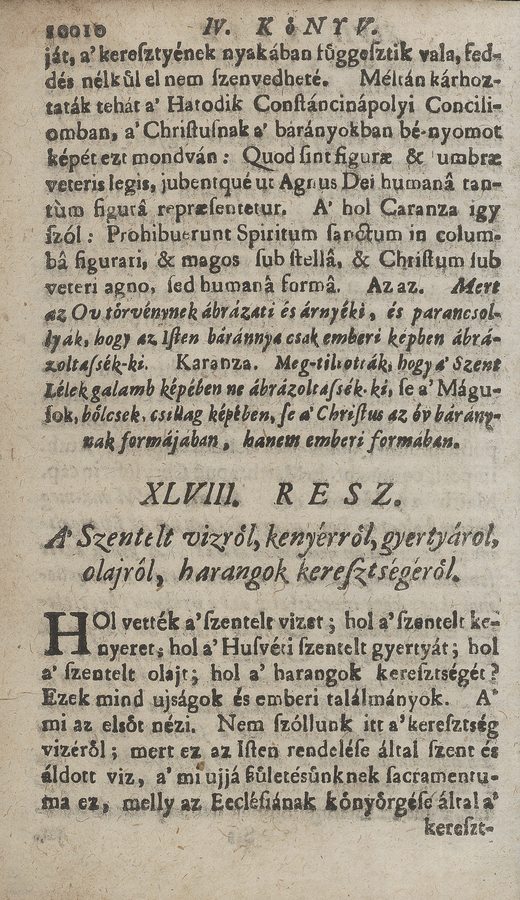 10010 IV. KőNYV.
ját, a' kereſztyének nyakában függeſztik vala, fed-
dés nélkül el nem ſzenvedheté. Méltán kárhoz-
taták tehát a' Hatodik Conſtáncinápolyi Concili-
omban, a' Chriſtuſnak a' bárányokban bé-nyomot
képét ezt mondván : Quod ſint figuræ & umbræ
veteris legis, jubentqué ut Agnus Dei humanâ tan-
tùm figurâ repræſentetur. A' hol Caranza igy
ſzól : Prohibuerunt Spiritum ſanctum in colum-
bâ figurari, & magos ſub ſtellâ, & Chriſtum ſub
veteri agno, ſed humanâ formâ. Az az. Mert
az Ov törvénynek ábrázati és árnyéki, és parancsol-
lyák, hogy az Iſten báránnya csak emberi képben ábrá-
zoltaſsék-ki. Karanza. Meg-tiltották, hogy a' Szent
Lélek galamb képében ne ábrázoltaſsék-ki, ſe a' Mágu-
ſok, bölcsek, csillag képében, ſe a' Chriſtus az óv bárány-
nak formájában, hanem emberi formában.
XLVIII. RESZ.
A' Szentelt vizről, kenyérről, gyertyárol,
olajról, harangok kereſztségéről.
HOl vették a' ſzentelt vizet ; hol a' ſzentelt ke-
nyeret ; hol a' Huſvéti ſzentelt gyertyát ; hol
a' ſzentelt olajt ; hol a' harangok kereſztségét ?
Ezek mind ujságok és emberi találmányok. A'
mi az elsőt nézi. Nem ſzóllunk itt a' kereſztség
vizéről ; mert ez az Iſten rendeléſe által ſzent és
áldott viz, a' mi ujjá ſzületéſünknek ſacramentu-
ma ez, melly az Eccléſiának könyörgéſe által a'
kereſzt-